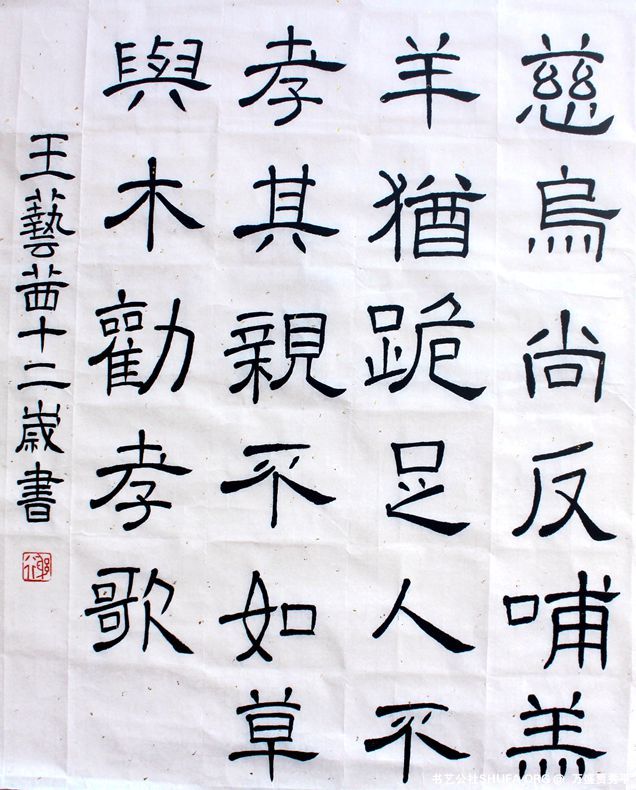 慈烏尚反哺羔
羊猶跪足人不
孝其親不如草
與木勸孝歌
王藝茜十二歲書
书艺公社SHUFA.ORG @